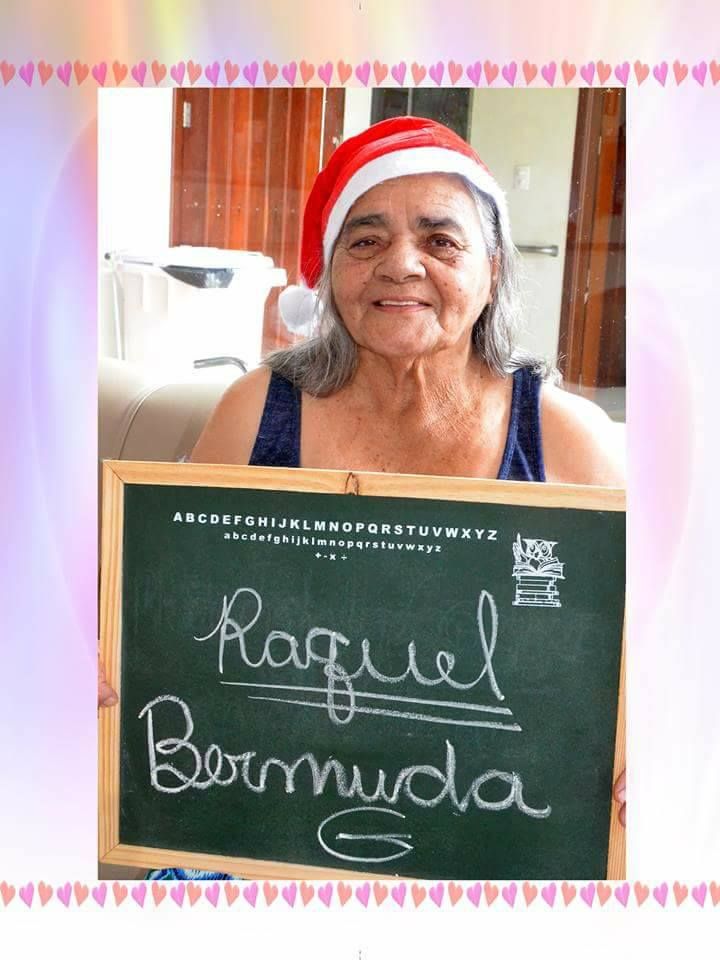 ABCDEFGHIJKLMNOPQRSTUVWXYZ
abcdefghijklmnopqrstuvwxyz
+ - x ÷
Raquel
Bermuda
G